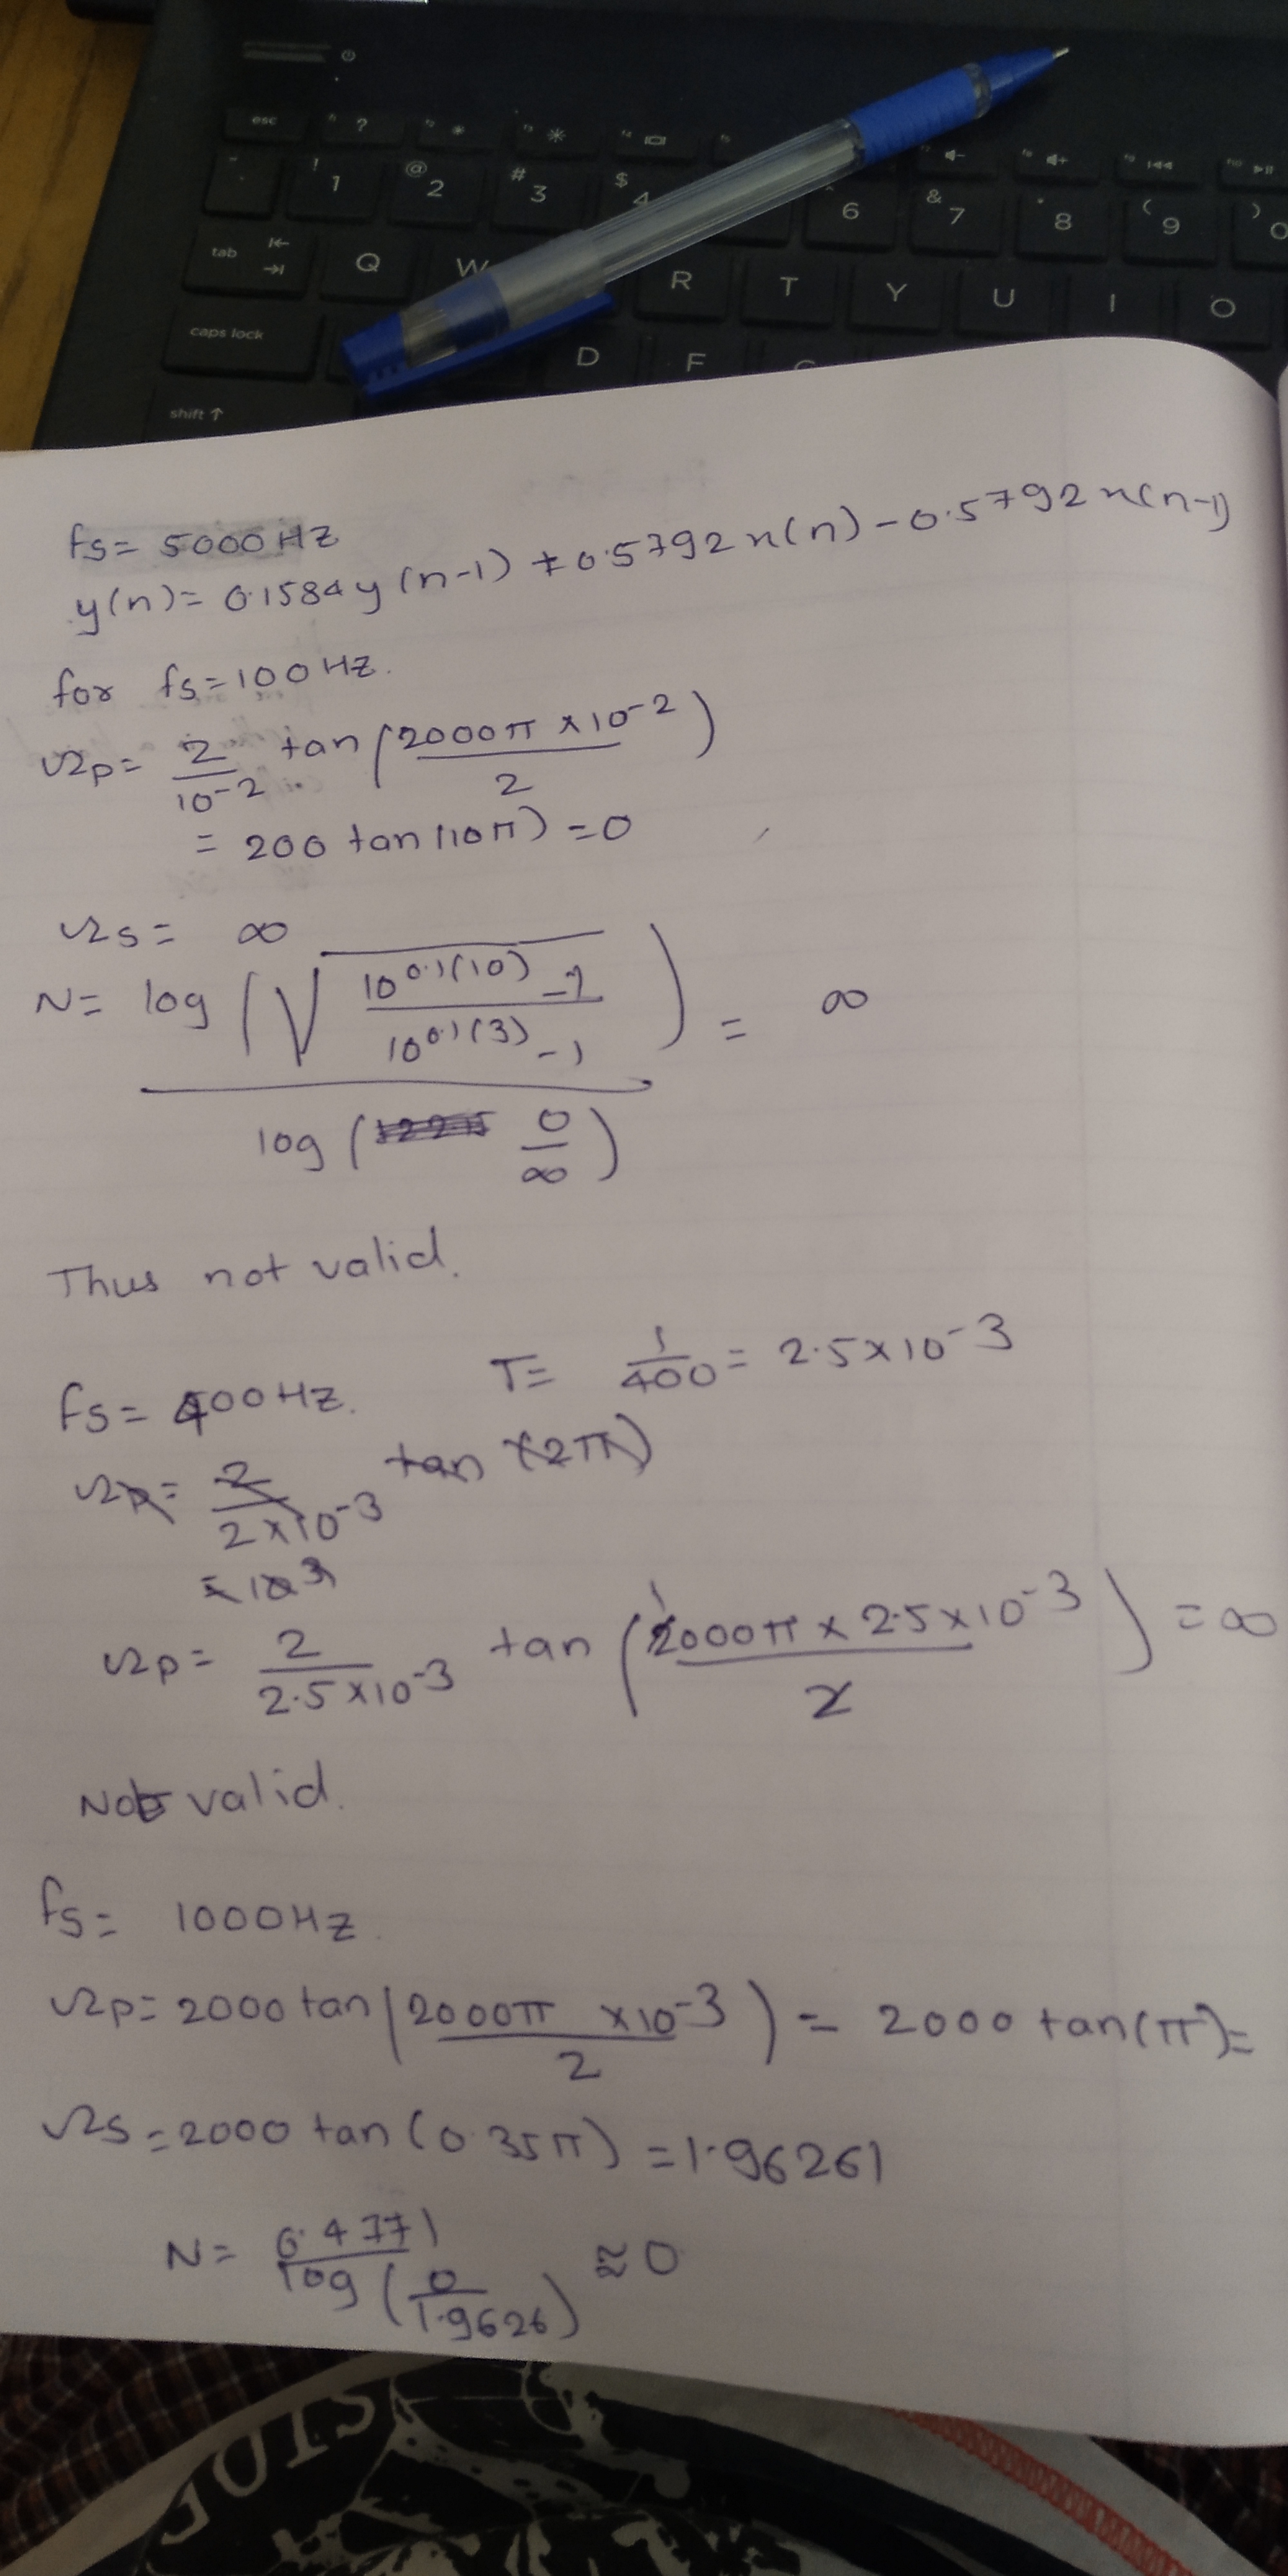 esc ? * *
! 1 @ 2 # 3 $ 4 6 & 7 * 8 ( 9 ) 0
tab Q W R T Y U I O
caps lock D F G
shift ↑
fs = 5000 Hz
y(n) = 0.1584 y(n-1) + 0.5792 x(n) - 0.5792 x(n-1)
for fs = 100 Hz.
Ωp = 2/10^-2 tan (2000π × 10^-2 / 2)
= 200 tan(10π) = 0
Ωs = ∞
N = log (√((10^0.1(10) - 1)/(10^0.1(3) - 1))) / log (0/∞) = ∞
Thus not valid.
fs = 400 Hz. T = 1/400 = 2.5×10^-3
Ωp = 2/(2×10^-3) tan (2π)
= 10^3
Ωp = 2/(2.5×10^-3) tan (2000π × 2.5×10^-3 / 2) = ∞
Not valid.
fs = 1000 Hz.
Ωp = 2000 tan (2000π × 10^-3 / 2) = 2000 tan(π) =
Ωs = 2000 tan (0.35π) = 1.96261
N = 0.4771 / log (0/1.9626) ≈ 0